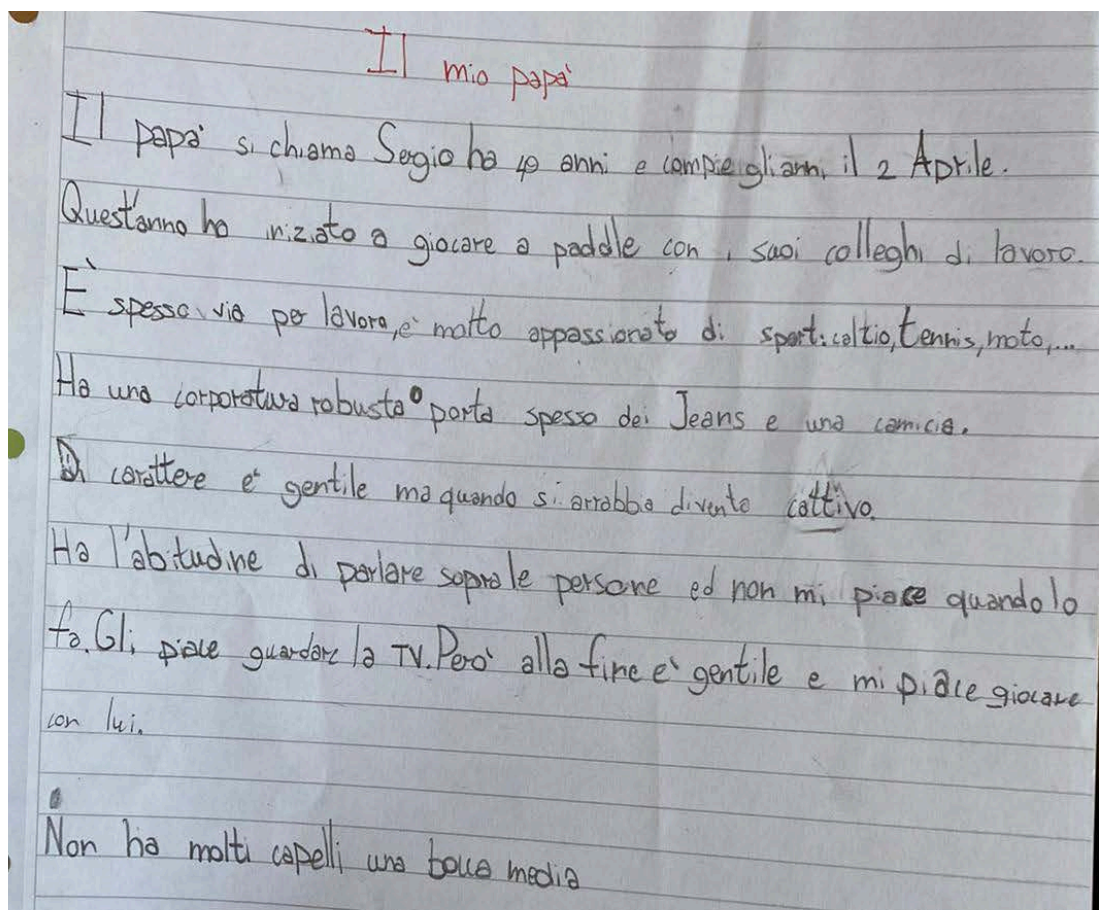 Il mio papà
Il papà si chiama Sergio ha 49 anni e compie gli anni il 2 Aprile.
Quest'anno ha iniziato a giocare a paddle con i suoi colleghi di lavoro.
È spesso via per lavoro, è molto appassionato di sport: calcio, tennis, moto,...
Ha una corporatura robusta porta spesso dei Jeans e una camicia.
Di carattere è gentile ma quando si arrabbia diventa cattivo.
Ha l'abitudine di parlare sopra le persone ed non mi piace quando lo
fa. Gli piace guardare la TV. Però alla fine è gentile e mi piace giocare
con lui.
Non ha molti capelli una bocca media